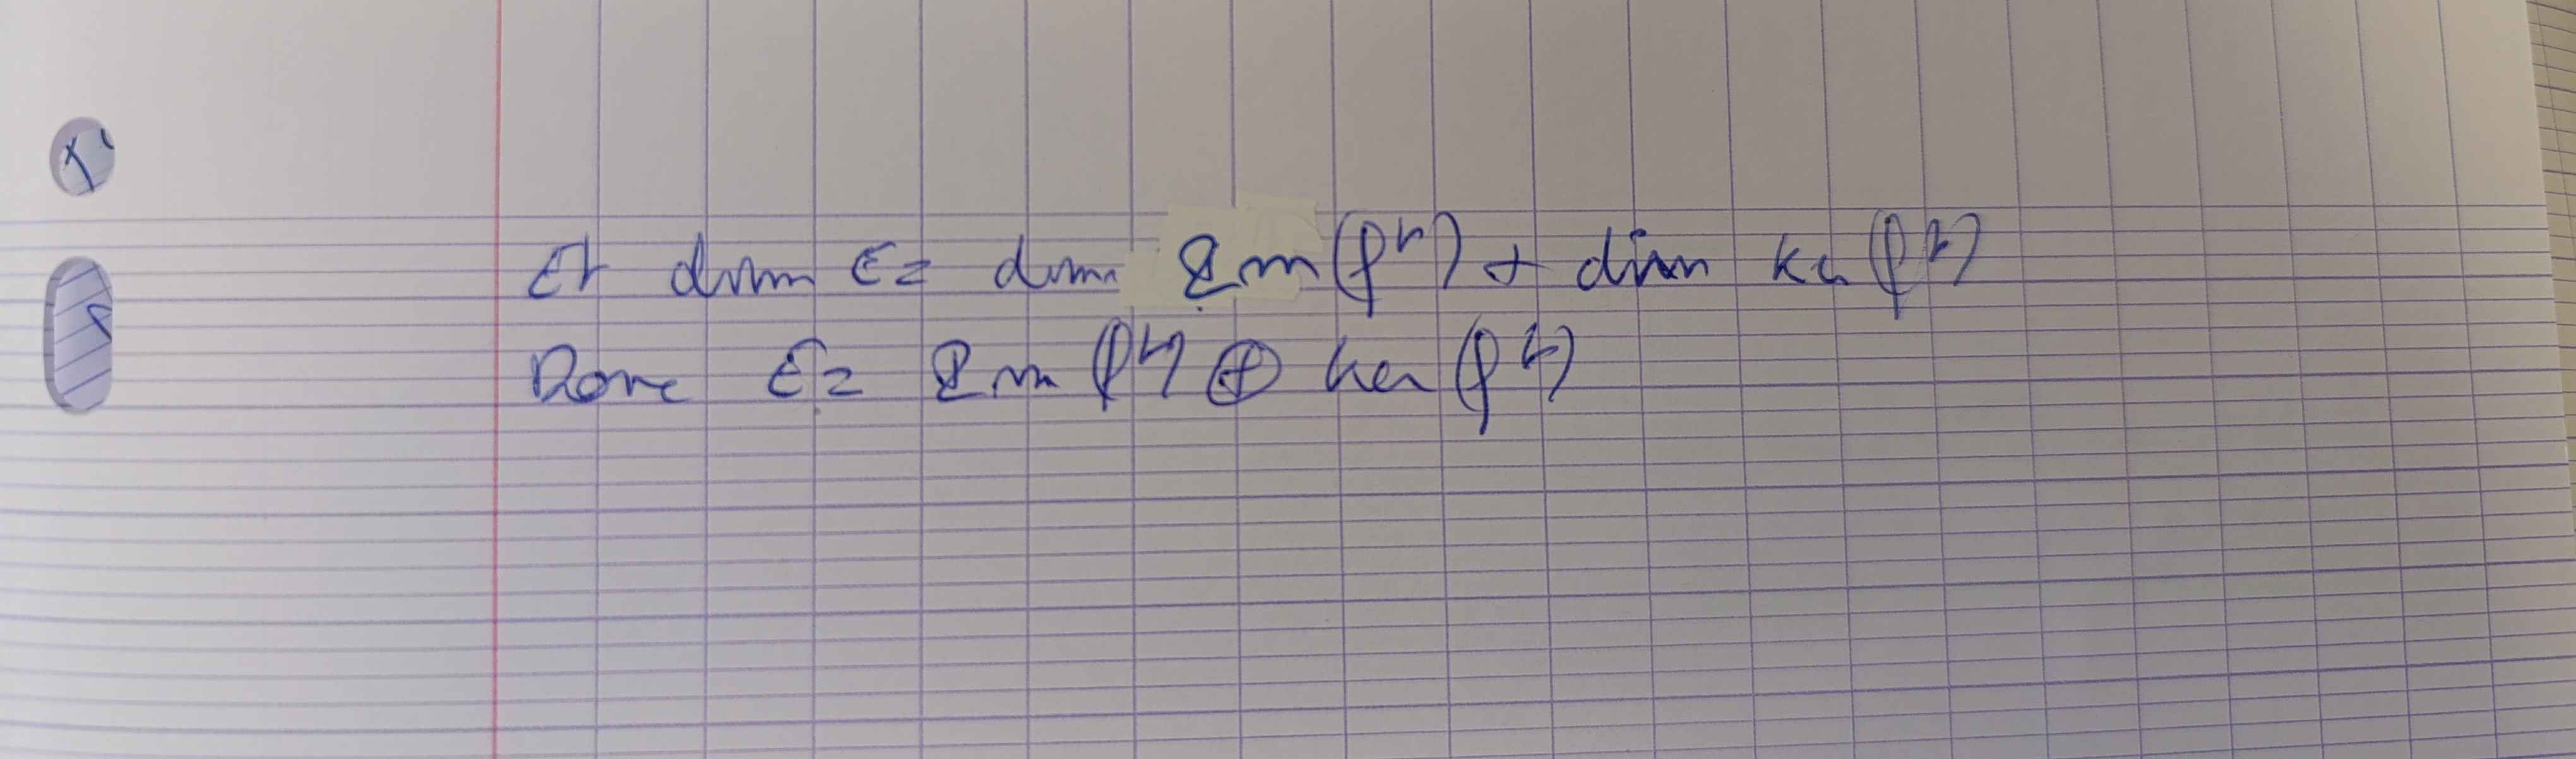 Et dim E = dim Im(f^r) + dim ker(f^r)
Donc E = Im(f^r) ⊕ ker(f^r)